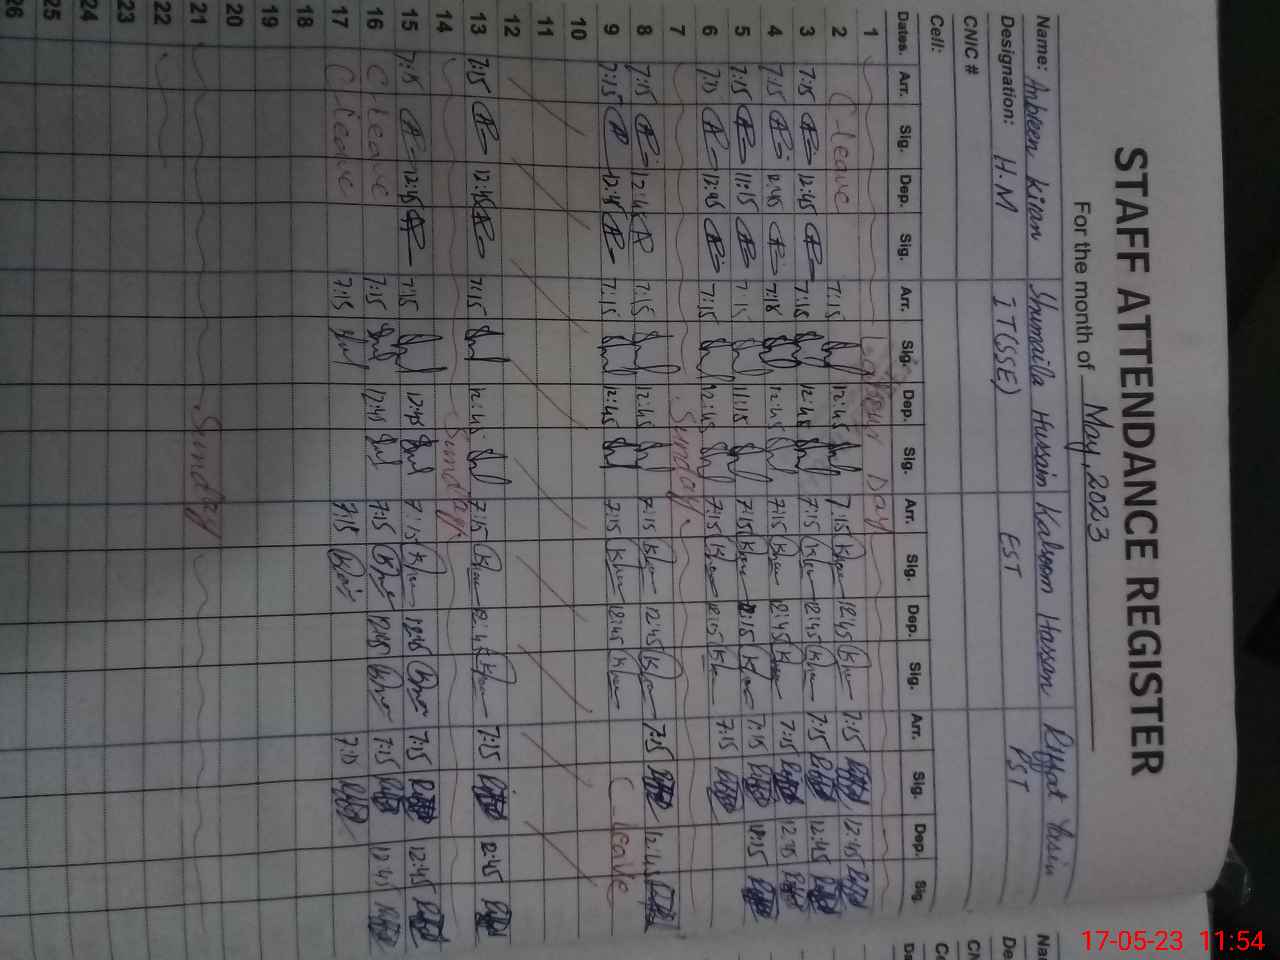 STAFF ATTENDANCE REGISTER
For the month of May, 2023
Name: Ambreen Kiran Shumaila Hussain Kalsoom Hassan Riffat Yasin
Designation: H.M IT(SSE) EST PST
CNIC #
Cell:
Dates. Arr. Sig. Dep. Sig. Arr. Sig. Dep. Sig. Arr. Sig. Dep. Sig. Arr. Sig. Dep. Sig.
1 Labour Day
2 C leave 7:15 12:45 7:15 12:45 7:15 12:45
3 7:15 12:45 7:15 12:45 7:15 12:45 7:15 12:45
4 7:15 12:45 7:18 12:45 7:15 12:45 7:15
5 7:15 11:15 7:15 11:15 7:15 7:15
6 12:45 7:15 12:45 7:15 7:15
7 Sunday
8 7:15 12:45 7:15 12:45 7:15 12:45 7:15 12:45
9 7:15 12:45 7:15 12:45 7:15 12:45 C leave
10
11
12
13 7:15 12:45 7:15 12:45 7:15 12:45 7:15 12:45
14 Sunday
15 7:15 12:45 7:15 12:45 7:15 12:45 7:15 12:45
16 C leave 7:15 12:45 7:15 12:45 7:15 12:45
17 C leave 7:15 7:15
18
19
20
21 Sunday
22
23
24
25
26
17-05-23 11:54